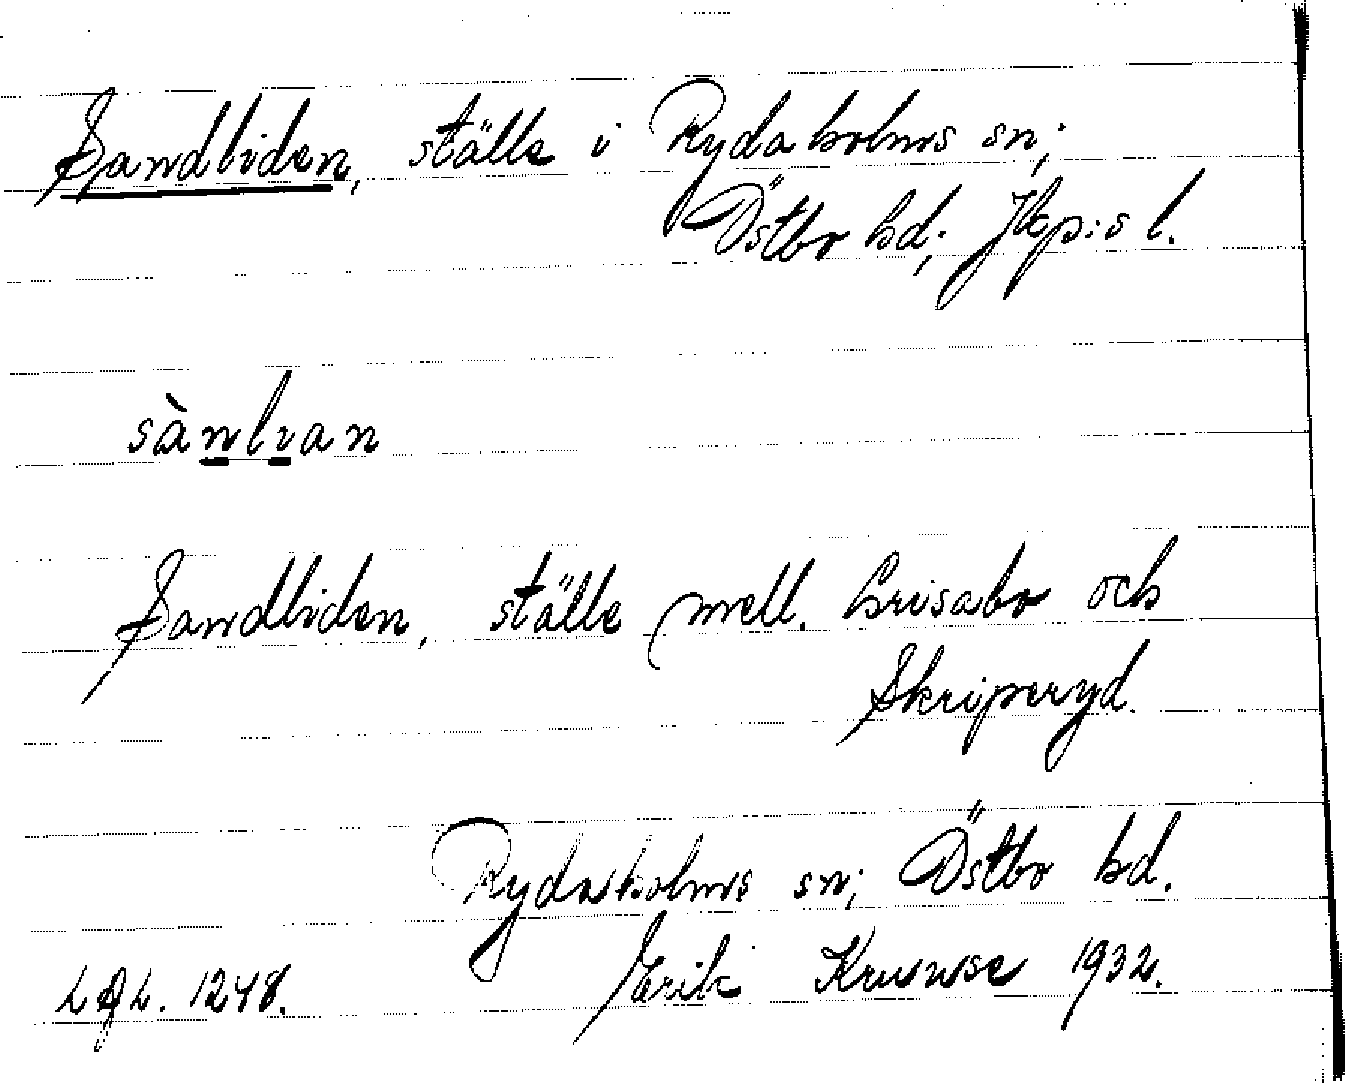 Sandliden, ställe i Rydaholms sn;
Östbo hd; Jkp:s l.
sànlian
Sandliden, ställe mell. Horsabo och
Skriperyd.
Rydaholms sn; Östbo hd.
L A L. 1248. Erik Kruuse 1932.